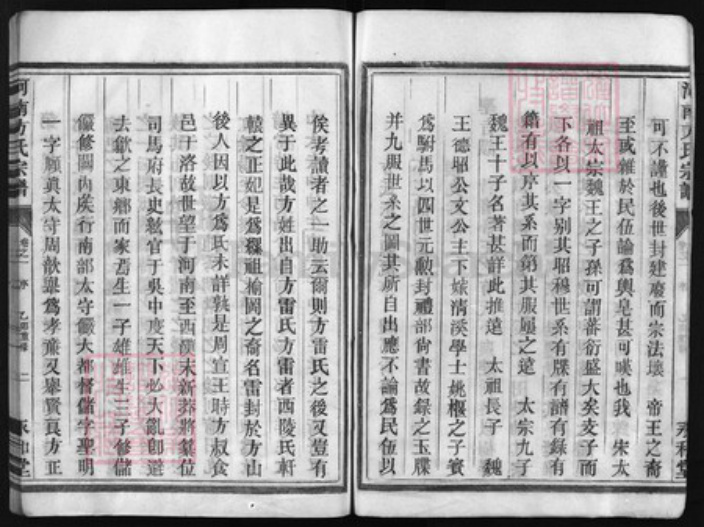 河南方氏宗譜
永和堂
可不謹也後世封建廢而宗法壞 帝王之裔
至或雜於民伍淪爲輿皂甚可嘆也我 宋太
祖太宗魏王之子孫可謂蕃衍盛大矣支子而
下各以一字別其昭穆世系有牒有譜有錄有
籍有以序其系而第其服屬之遠 太宗九子
魏王十子名著甚詳此推遠 太祖長子 魏
王德昭公文公主下嫁清溪學士姚櫃之子實
爲駙馬以四世元勲封禮部尙書故録之玉牒
并九服世系之圖其所自出應不論爲民伍以
俟考讀者之一助云爾則方雷氏之後又豈有
異于此哉方姓出自方雷氏方雷者西陵氏軒
轅之正妃是爲釋祖榆罔之裔名雷封於方山
後人因以方爲氏未詳孰是周宣王時方叔食
邑于洛故世望于河南至西漢末新莽將簒位
司馬府長史紘官于吳中度天下必大亂卽道
去歙之東鄉而家焉生一子雄雄生三子修儲
儼修關內侯行南部太守儼大都督儲字聖明
一字頤眞太守周歆舉爲孝廉又舉賢良方正
河南方氏宗譜
卷之一 序
永和堂